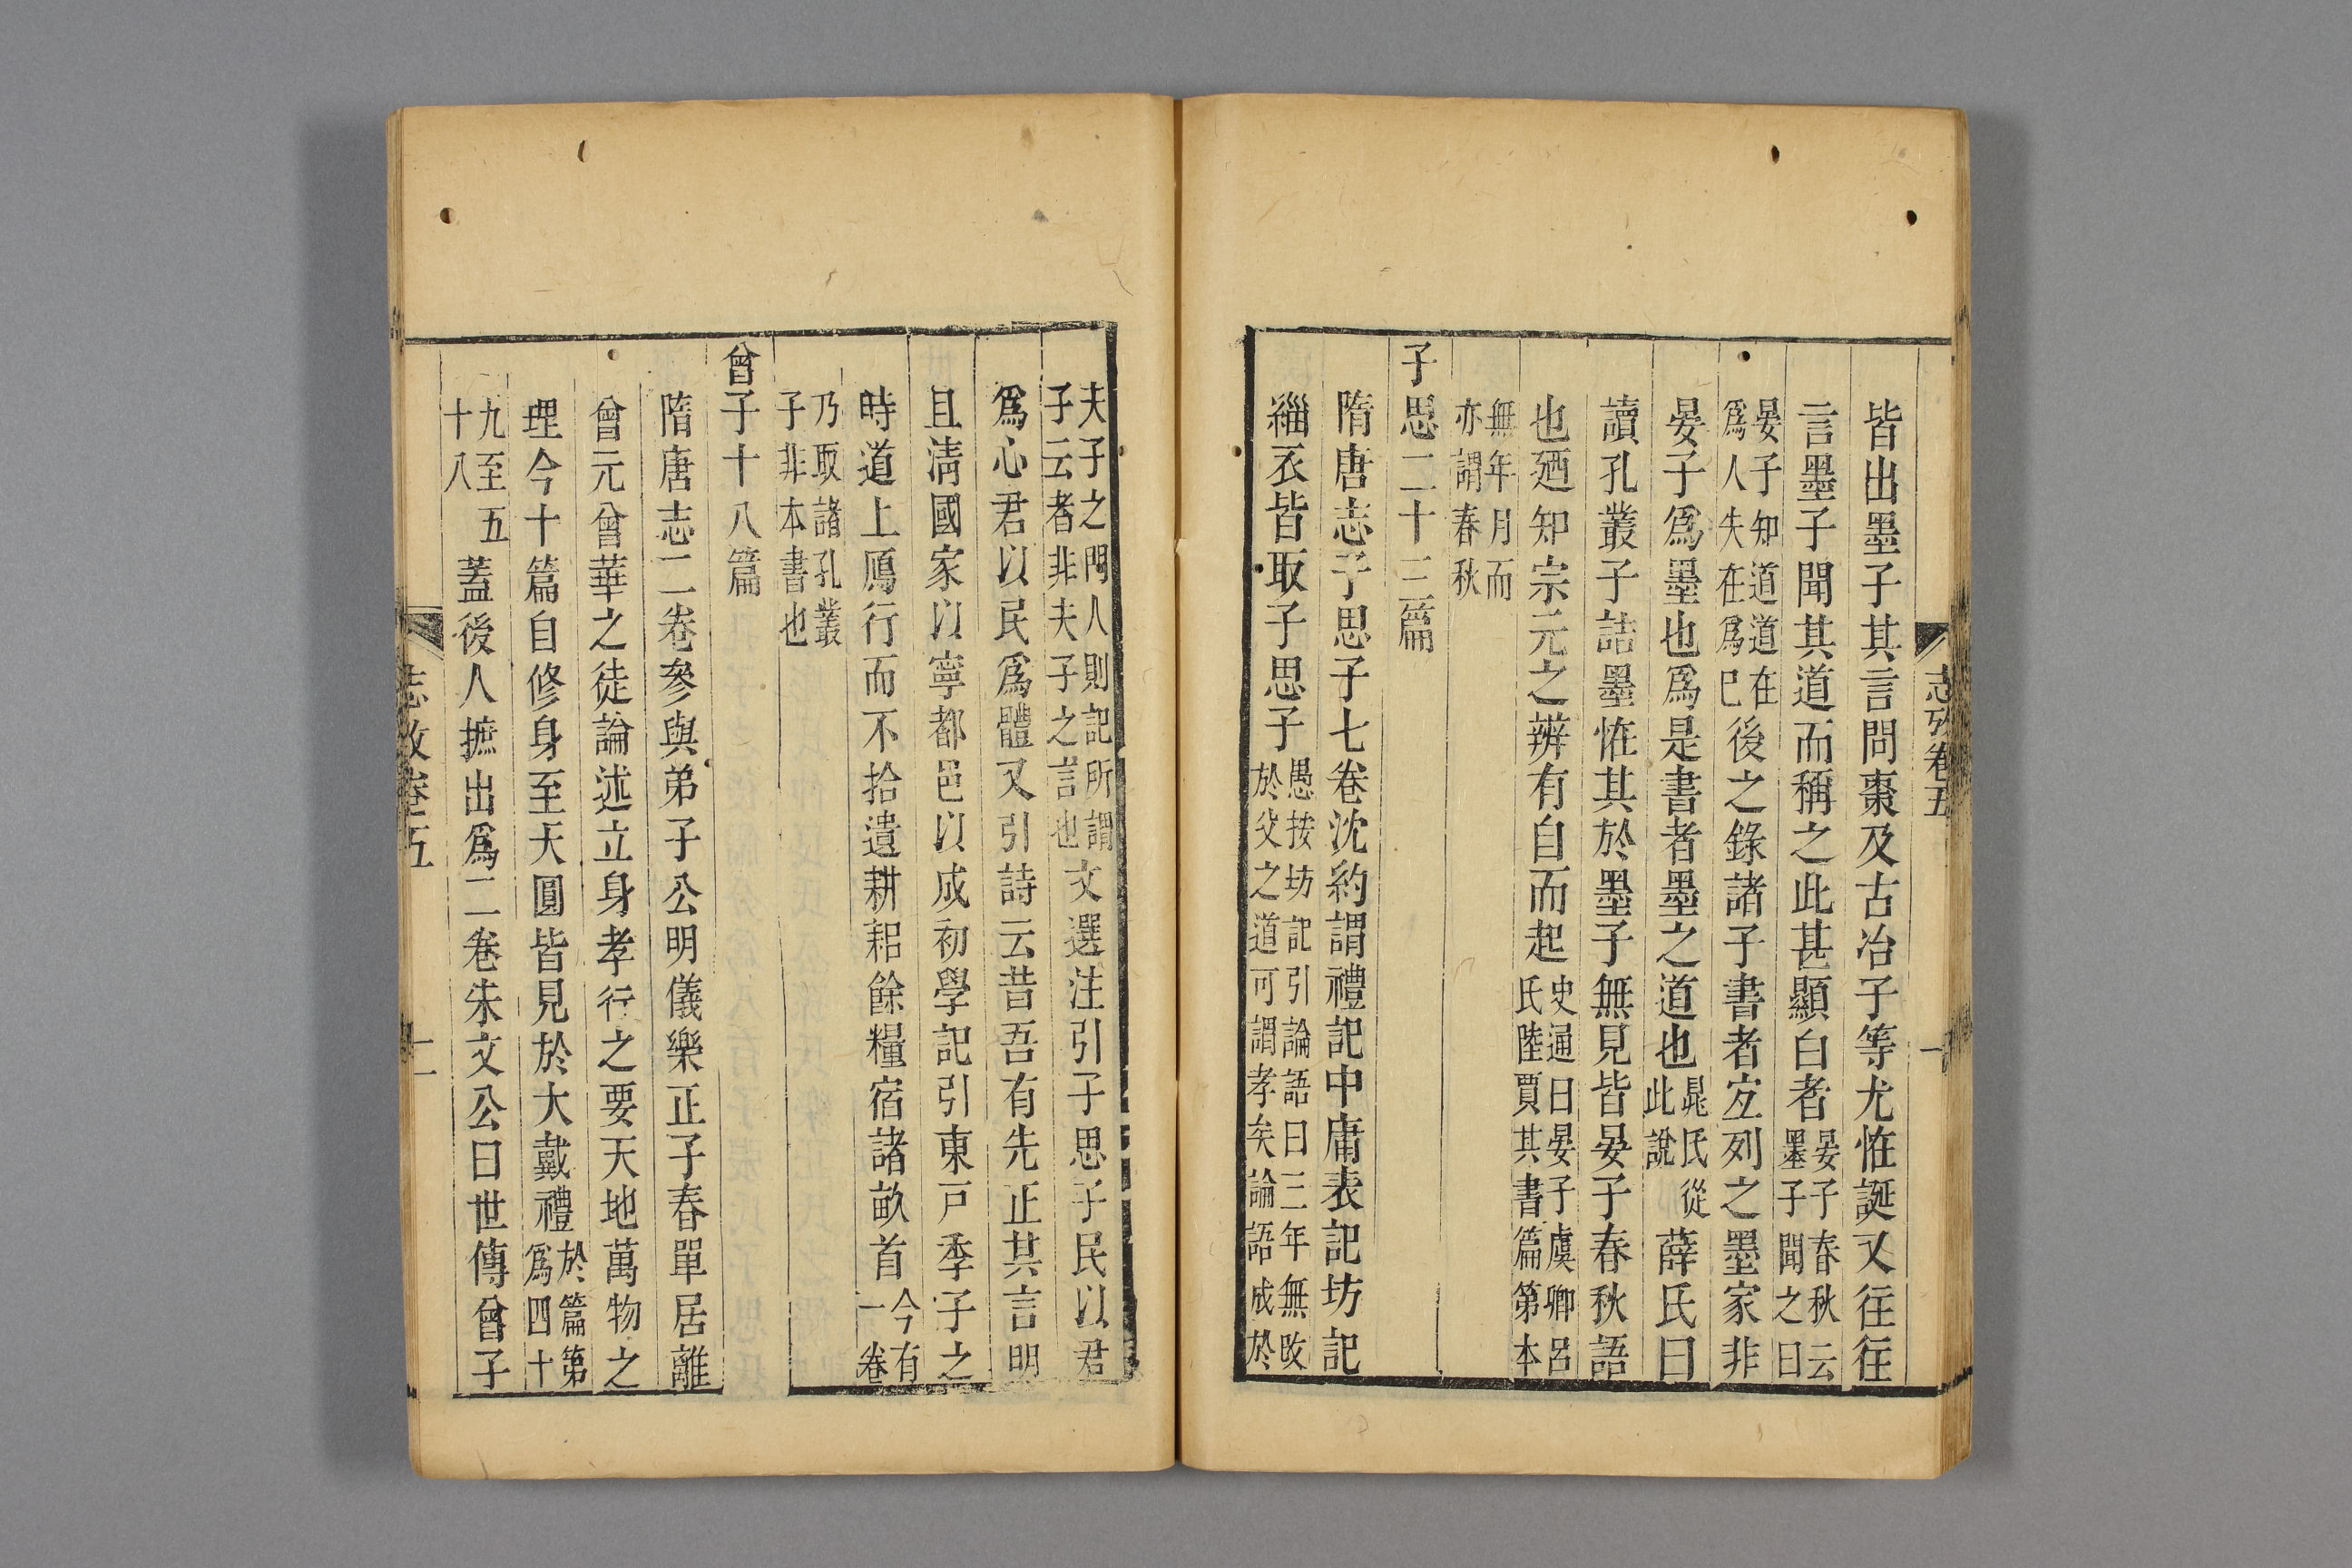 志攷卷五
皆出墨子其言問棗及古冶子等尤恠誕又往往
言墨子聞其道而稱之此甚顯白者晏子春秋云墨子聞之曰
晏子知道道在爲人失在爲己後之錄諸子書者宐列之墨家非
晏子爲墨也爲是書者墨之道也鼂氏從此說薛氏曰
讀孔叢子詰墨恠其於墨子無見皆晏子春秋語
也廼知宗元之辨有自而起史通曰晏子虞卿呂氏陸賈其書篇第本
無年月而亦謂春秋
子思二十三篇
隋唐志子思子七卷沈約謂禮記中庸表記坊記
緇衣皆取子思子愚按坊記引論語曰三年無改於父之道可謂孝矣論語成於
夫子之門人則記所謂子云者非夫子之言也文選注引子思子民以君
爲心君以民爲體又引詩云昔吾有先正其言明
且淸國家以寧都邑以成初學記引東戸季子之
時道上鴈行而不拾遺耕耜餘糧宿諸畝首今有一卷
乃取諸孔叢子非本書也
曾子十八篇
隋唐志二卷參與弟子公明儀樂正子春單居離
曾元曾華之徒論述立身孝行之要天地萬物之
理今十篇自修身至天圓皆見於大戴禮於篇第爲四十
九至五十八蓋後人摭出爲二卷朱文公曰世傳曾子
志攷卷五
十一